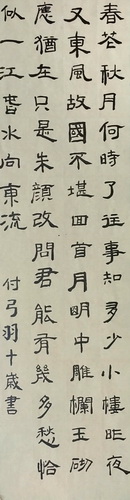 春花秋月何時了往事知多少小樓昨夜
又東風故國不堪回首月明中雕欄玉砌
應猶在只是朱顏改問君能有幾多愁恰
似一江春水向東流
付弓羽十歲書